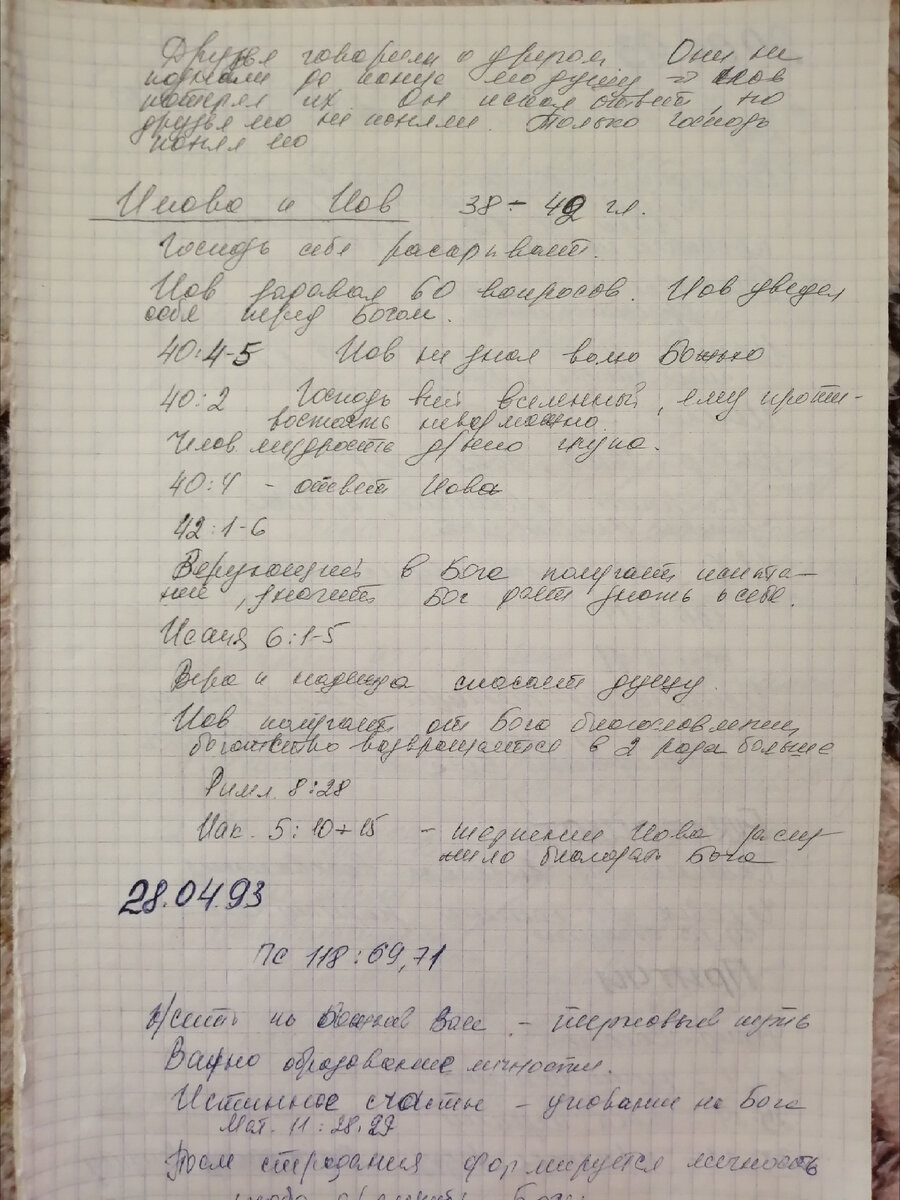 Друзья говорили о другом Они не
поняли до конца его душу => Иов
потерял их. Он искал ответ, но
друзья его не поняли. Только Господь
понял его
Иегова и Иов 38 - 42 гл.
Господь себя раскрывает.
Иов задавал 60 вопросов. Иов увидел
себя перед Богом.
40:4-5 Иов не знал волю Божью
40:2 Господь вселенный, ему проти-
востоять невозможно.
Челов мудрость глупа.
40:4 - ответ Иова
42:1-6
Верующий в Бога получает испыта-
ние, значит Бог дает знать о себе.
Исаия 6:1-5
Вера и надежда спасает душу.
Иов получает от Бога благословение,
богатство возвращается в 2 раза больше
Римл. 8:28
Иак. 5:10+15 - терпение Иова
благодать Бога
28.04.93
Пс 118:69,71
Жить по Божьей Воле - терновый путь
Важно образование личности.
Истинное счастье - упование на Бога
Мат. 11:28,29
После страдания формируется личность